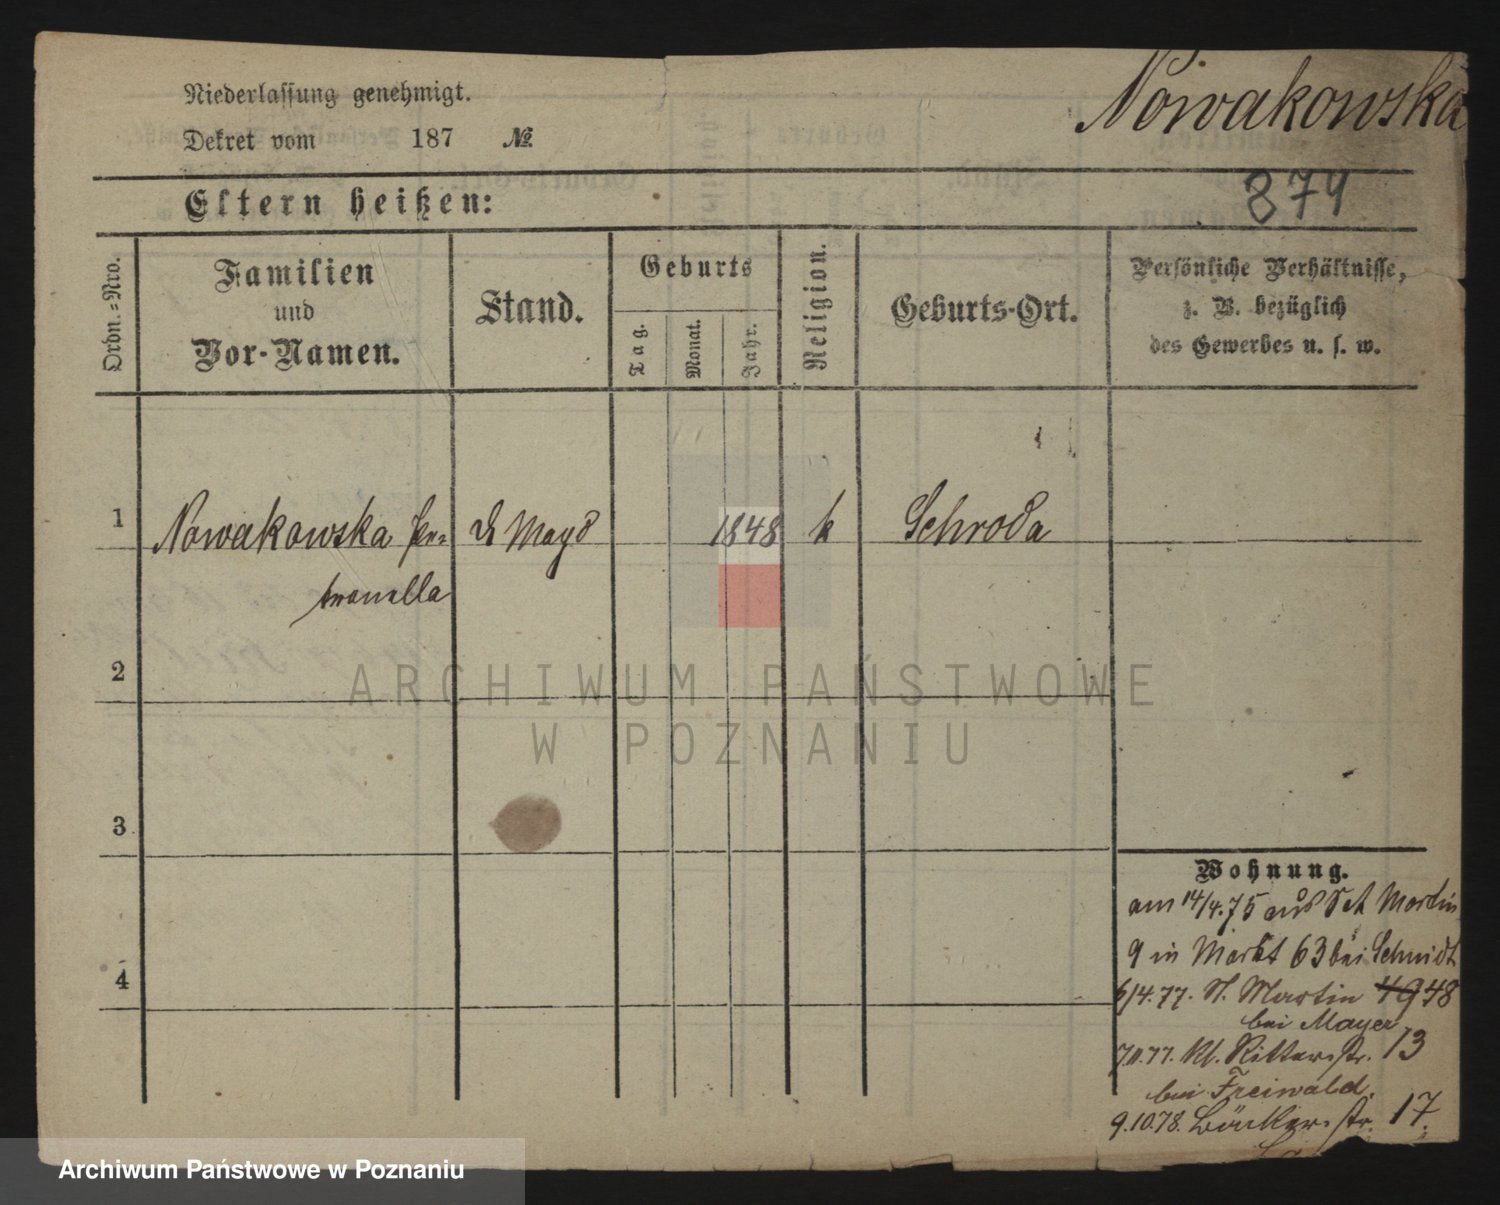 Niederlassung genehmigt.
Dekret vom 187 №
Nowakowska
874
Eltern heißen:
Ordn.-Nro.
Familien
und
Vor-Namen.
Stand.
Geburts
Tag.
Monat.
Jahr.
Religion.
Geburts-Ort.
Persönliche Verhältnisse,
z. B. bezüglich
des Gewerbes u. s. w.
1 Nowakowska Pe= d Magd 1848 k Schroda
tronella
2
3
4
ARCHIWUM PAŃSTWOWE
W POZNANIU
Wohnung.
am 14/4.75 aus Sct Martin
9 in Markt 63 bei Schmidt
6/4.77. St. Martin 49 48
bei Mayer
77. Kl. Ritterstr. 13
bei Freiwald.
9.10.78. Bäckerstr. 17.
Archiwum Państwowe w Poznaniu